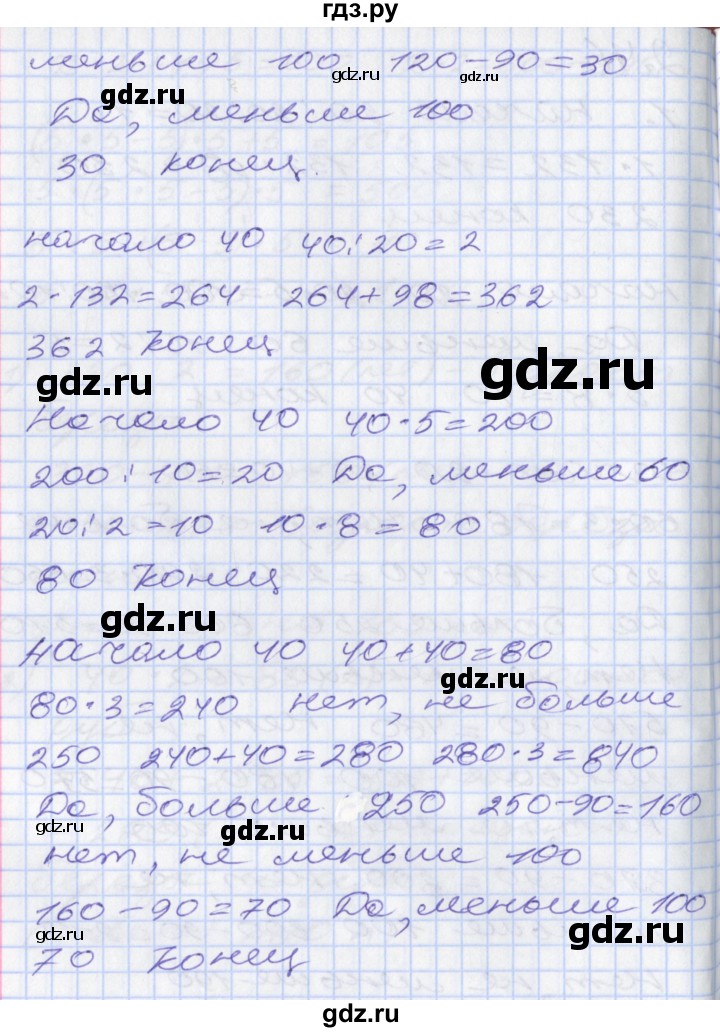 гдз.ру
меньше 100 120-90=30
gdz.ru gdz.ru gdz.ru
Да, меньше 100
30 конец.
начало 40 40:20=2
2·132=264 264+98=362
362 конец
gdz.ru gdz.ru
Начало 40 40·5=200
200:10=20 Да, меньше 60
20:2=10 10·8=80
80 конец
gdz.ru
начало 40 40+40=80
gdz.ru
80·3=240 нет, не больше
250 240+40=280 280·3=840
Да, больше 250 250-90=160
gdz.ru gdz.ru gdz.ru
нет, не меньше 100
160-90=70 Да, меньше 100
gdz.ru gdz.ru
70 конец
gdz.ru